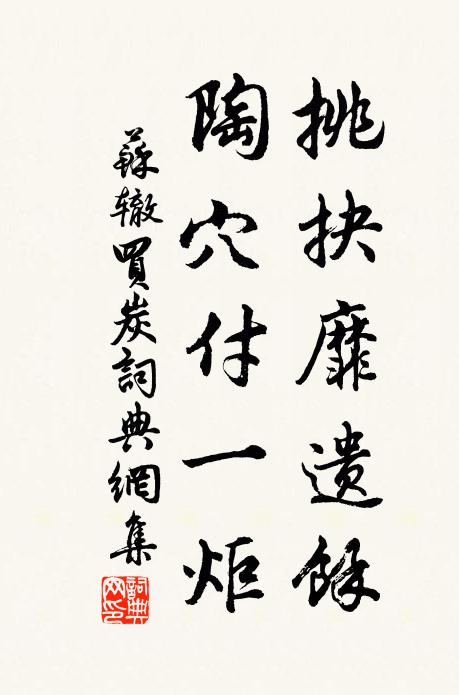 挑抉靡遺餘
陶穴付一炬
蘇轍買炭詞典網集
詞典網印